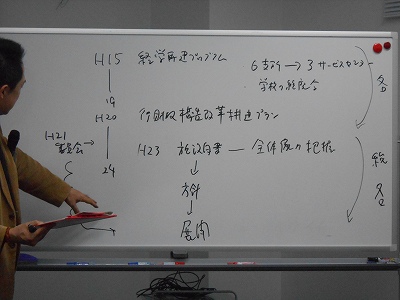 H15 経営再建プログラム
6支所→3サービスセンター
学校の統廃合
19
H20 行財政構造改革推進プラン
H21
委員会→
H23 施設白書 ― 全体像の把握
24
↓
方針
↓
展開
各
総合